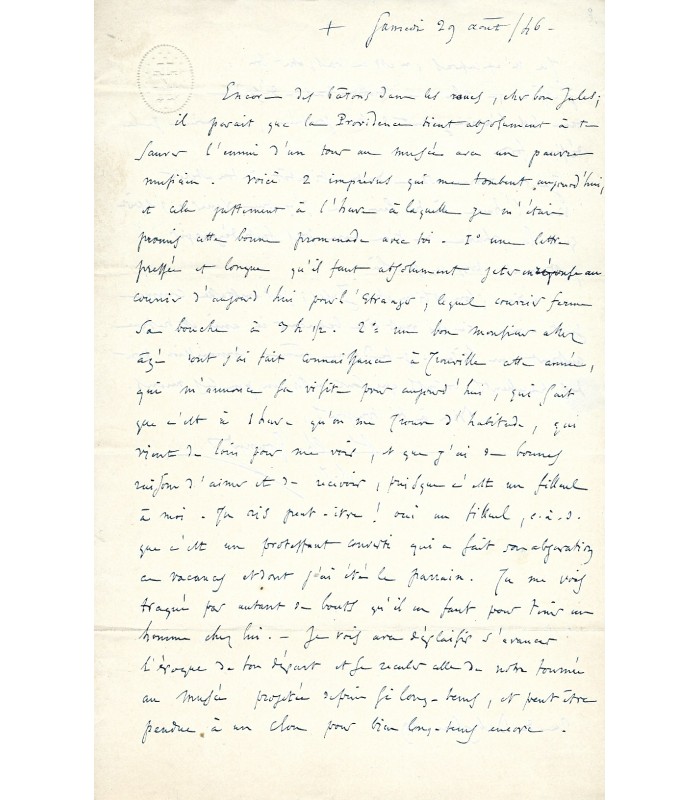 + Samedi 29 août /46 -
Encore des bâtons dans les roues, cher bon Jules;
il parait que la Providence tient absolument à te
sauver l'ennui d'un tour au musée avec un pauvre
musicien. Voici 2 imprévus qui me tombent aujourd'hui,
et cela justement à l'heure à laquelle je m'étais
promis cette bonne promenade avec toi. 1° une lettre
pressée et longue qu'il faut absolument jeter en réponse au
courrier d'aujourd'hui pour l'Etranger, lequel courrier ferme
sa bouche à 3 h 1/2. 2° un bon monsieur assez
âgé dont j'ai fait connaissance à Trouville cette année,
qui m'annonce sa visite pour aujourd'hui, qui sait
que c'est à 1 heure qu'on me trouve d'habitude, qui
vient de loin pour me voir, et que j'ai de bonnes
raisons d'aimer et de recevoir, puisque c'est un filleul
à moi. Tu ris peut-être! oui un filleul, c.à.d.
que c'est un protestant converti qui a fait son abjuration
en vacances et dont j'ai été le parrain. Tu me vois
traqué par autant de bouts qu'il en faut pour tenir un
homme chez lui. - Je vois avec déplaisir s'avancer
l'époque de ton départ et se reculer celle de notre tournée
au musée projetée depuis si long-tems, et peut être
pendue à un clou pour bien long-tems encore.